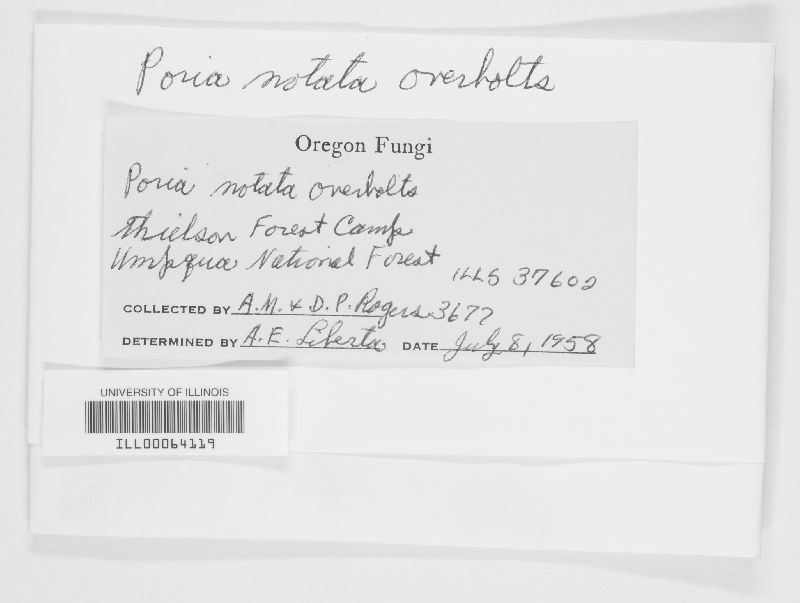 Poria notata overholts
Oregon Fungi
Poria notata overholts
Thielson Forest Camp
Umpqua National Forest
ILLS 37602
COLLECTED BY A.M. & D.P. Rogers 3677
DETERMINED BY A.E. Liberta DATE July 8, 1958
UNIVERSITY OF ILLINOIS
ILL00064119